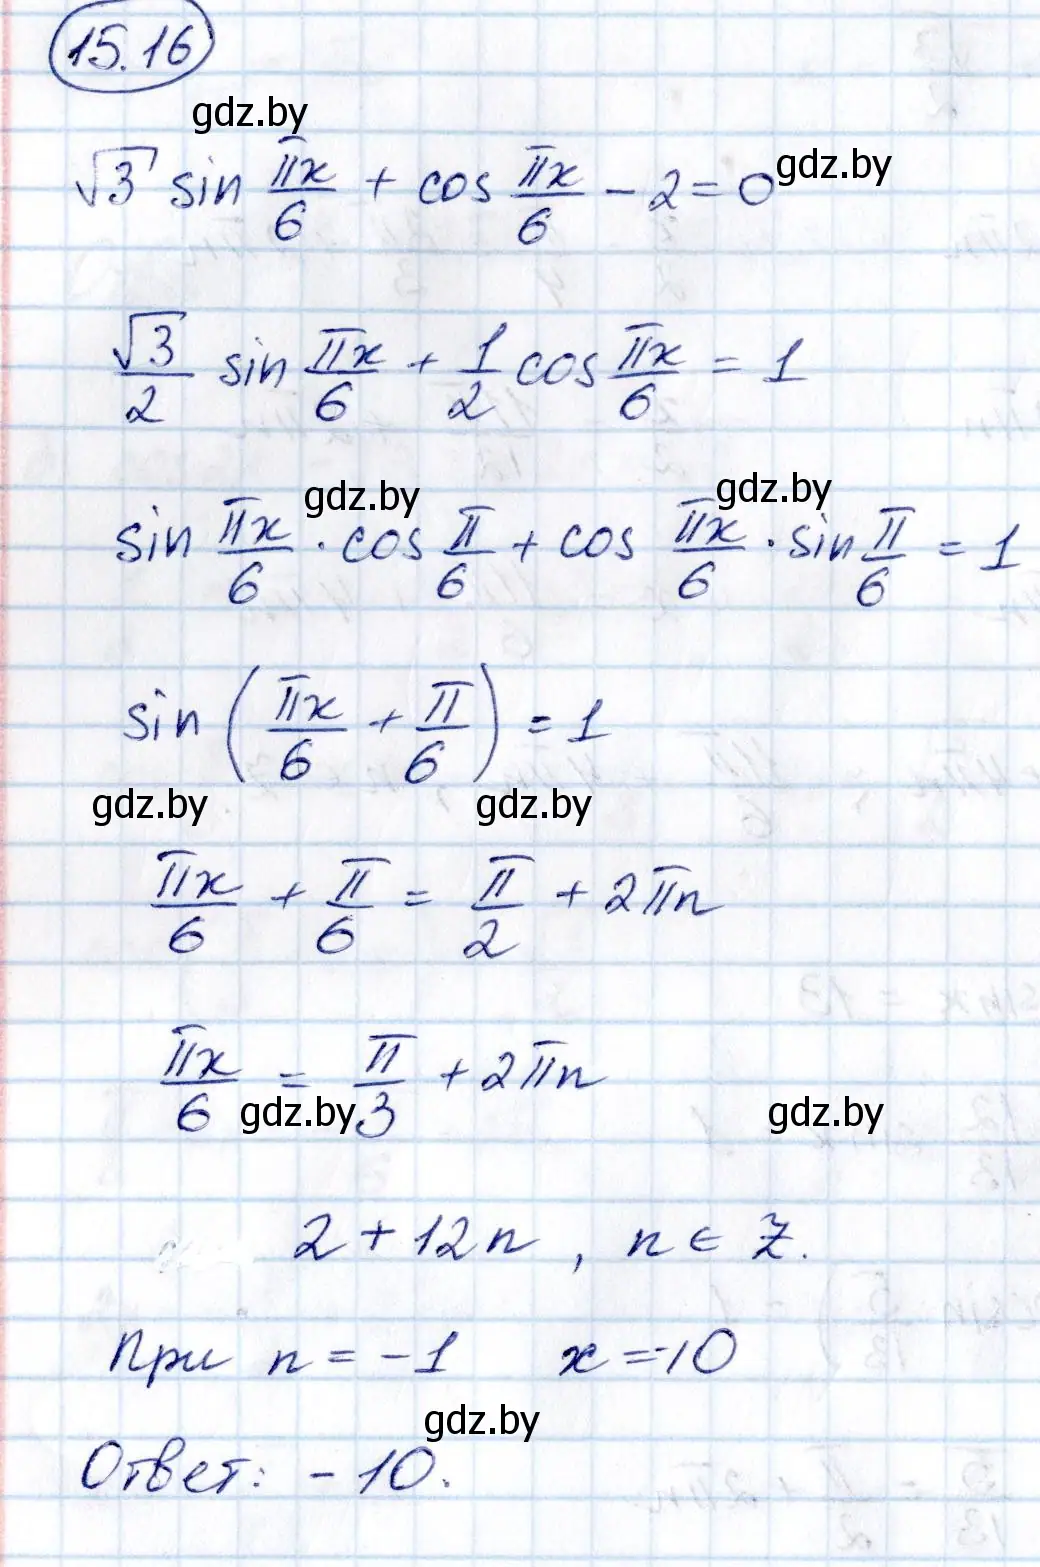 15.16
gdz.by
√3 sin πx/6 + cos πx/6 - 2 = 0 gdz.by
√3/2 sin πx/6 + 1/2 cos πx/6 = 1
gdz.by gdz.by
sin πx/6 · cos π/6 + cos πx/6 · sin π/6 = 1
sin (πx/6 + π/6) = 1
gdz.by gdz.by
πx/6 + π/6 = π/2 + 2πn
πx/6 = π/3 + 2πn
gdz.by gdz.by
2 + 12n , n ∈ Z.
При n = -1 x = -10
gdz.by
Ответ: - 10.